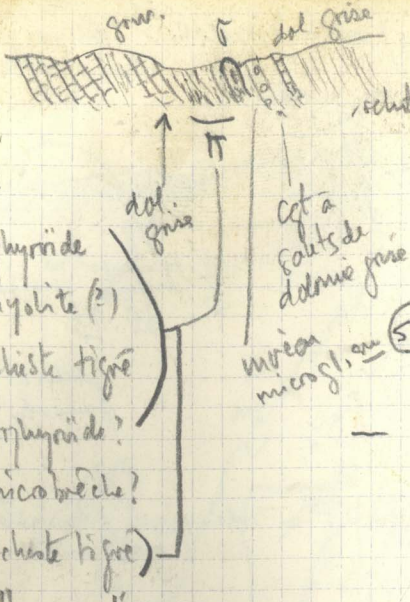 grise
dol
σ
schist
π
dol.
grise
cgt à
galets de
dolomie grise
niveau
microgl, ou
5
hyroïde
yolite (?)
chiste tigré
rphyroïde?
icrobrèche?
chiste tigré)